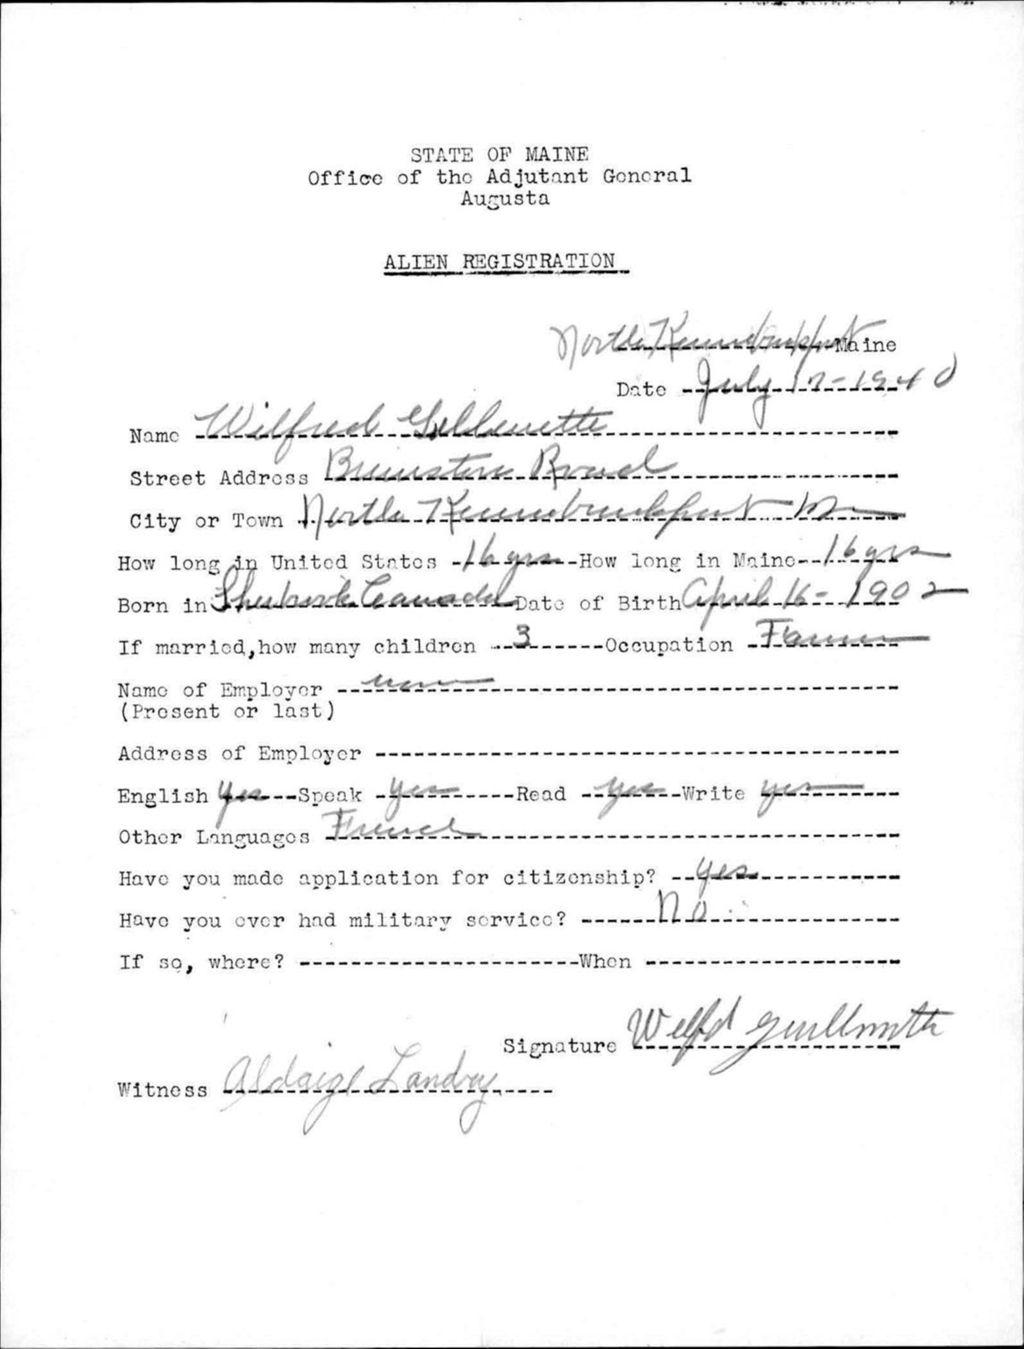 STATE OF MAINE
Office of the Adjutant General
Augusta
ALIEN REGISTRATION
North Kennebunkport Maine
Date July 17-1940
Name Wilfred
Street Address Road
City or Town North Kennebunkport Me
How long in United States 16 yrs How long in Maine 16 yrs
Born in Canada Date of Birth April 16-1902
If married, how many children 3 Occupation Farmer
Name of Employer none
(Present or last)
Address of Employer
English Yes Speak yes Read yes Write yes
Other Languages French
Have you made application for citizenship? yes
Have you ever had military service? No
If so, where? When
Signature
Witness Landry